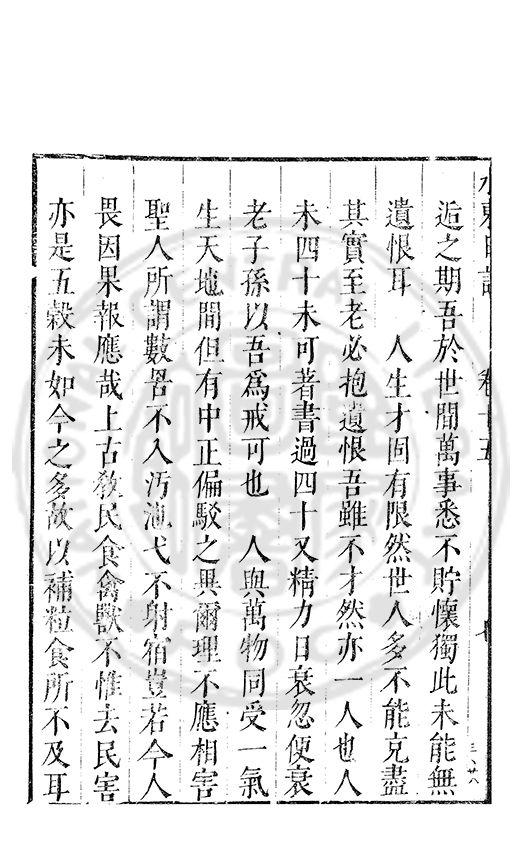 水東日記 卷十五 十
逅之期吾於世間萬事悉不貯懷獨此未能無
遺恨耳 人生才固有限然世人多不能克盡
其實至老必抱遺恨吾雖不才然亦一人也人
未四十未可著書過四十又精力日衰忽便衰
老子孫以吾爲戒可也 人與萬物同受一氣
生天地間但有中正偏駁之異爾理不應相害
聖人所謂數罟不入汚池弋不射宿豈若今人
畏因果報應哉上古敎民食禽獸不惟去民害
亦是五穀未如今之多故以補粒食所不及耳